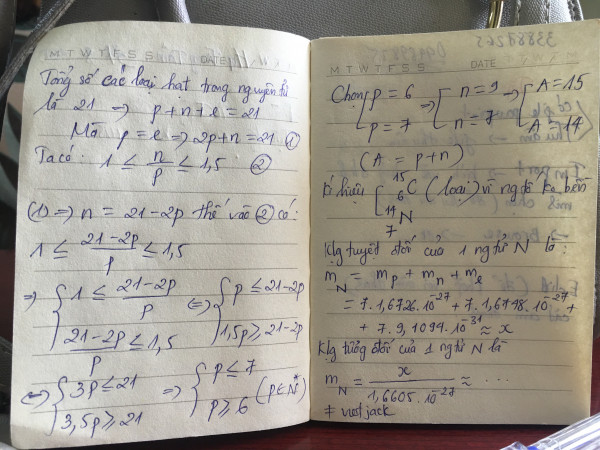 M T W T F S S DATE
Tổng số các loại hạt trong nguyên tử
là 21 => p+n+e = 21
Mà p = e => 2p+n = 21 ①
Ta có: 1 ≤ n/p ≤ 1,5 ②
(1) => n = 21-2p thế vào ② có:
1 ≤ (21-2p)/p ≤ 1,5
=> { 1 ≤ (21-2p)/p <=> { p ≤ 21-2p
(21-2p)/p ≤ 1,5 1,5p ≥ 21-2p
<=> { 3p ≤ 21 => { p ≤ 7
3,5p ≥ 21 p ≥ 6 (p ∈ N*)
M T W T F S S DATE
Chọn [ p = 6 => [ n = 9 => [ A = 15
p = 7 n = 7 A = 14
(A = p+n)
Kí hiệu [ 15 6 C (loại) vì ng tử k bền
14 7 N
Klg tuyệt đối của 1 ng tử N là:
m N = m p + m n + m e
= 7.1,6726.10^-27 + 7.1,6748.10^-27 +
+ 7.9,1094.10^-31 ≈ x
Klg tương đối của 1 ng tử N là
m N = x / 1,6605.10^-27 ≈ ...
≠ vietjack